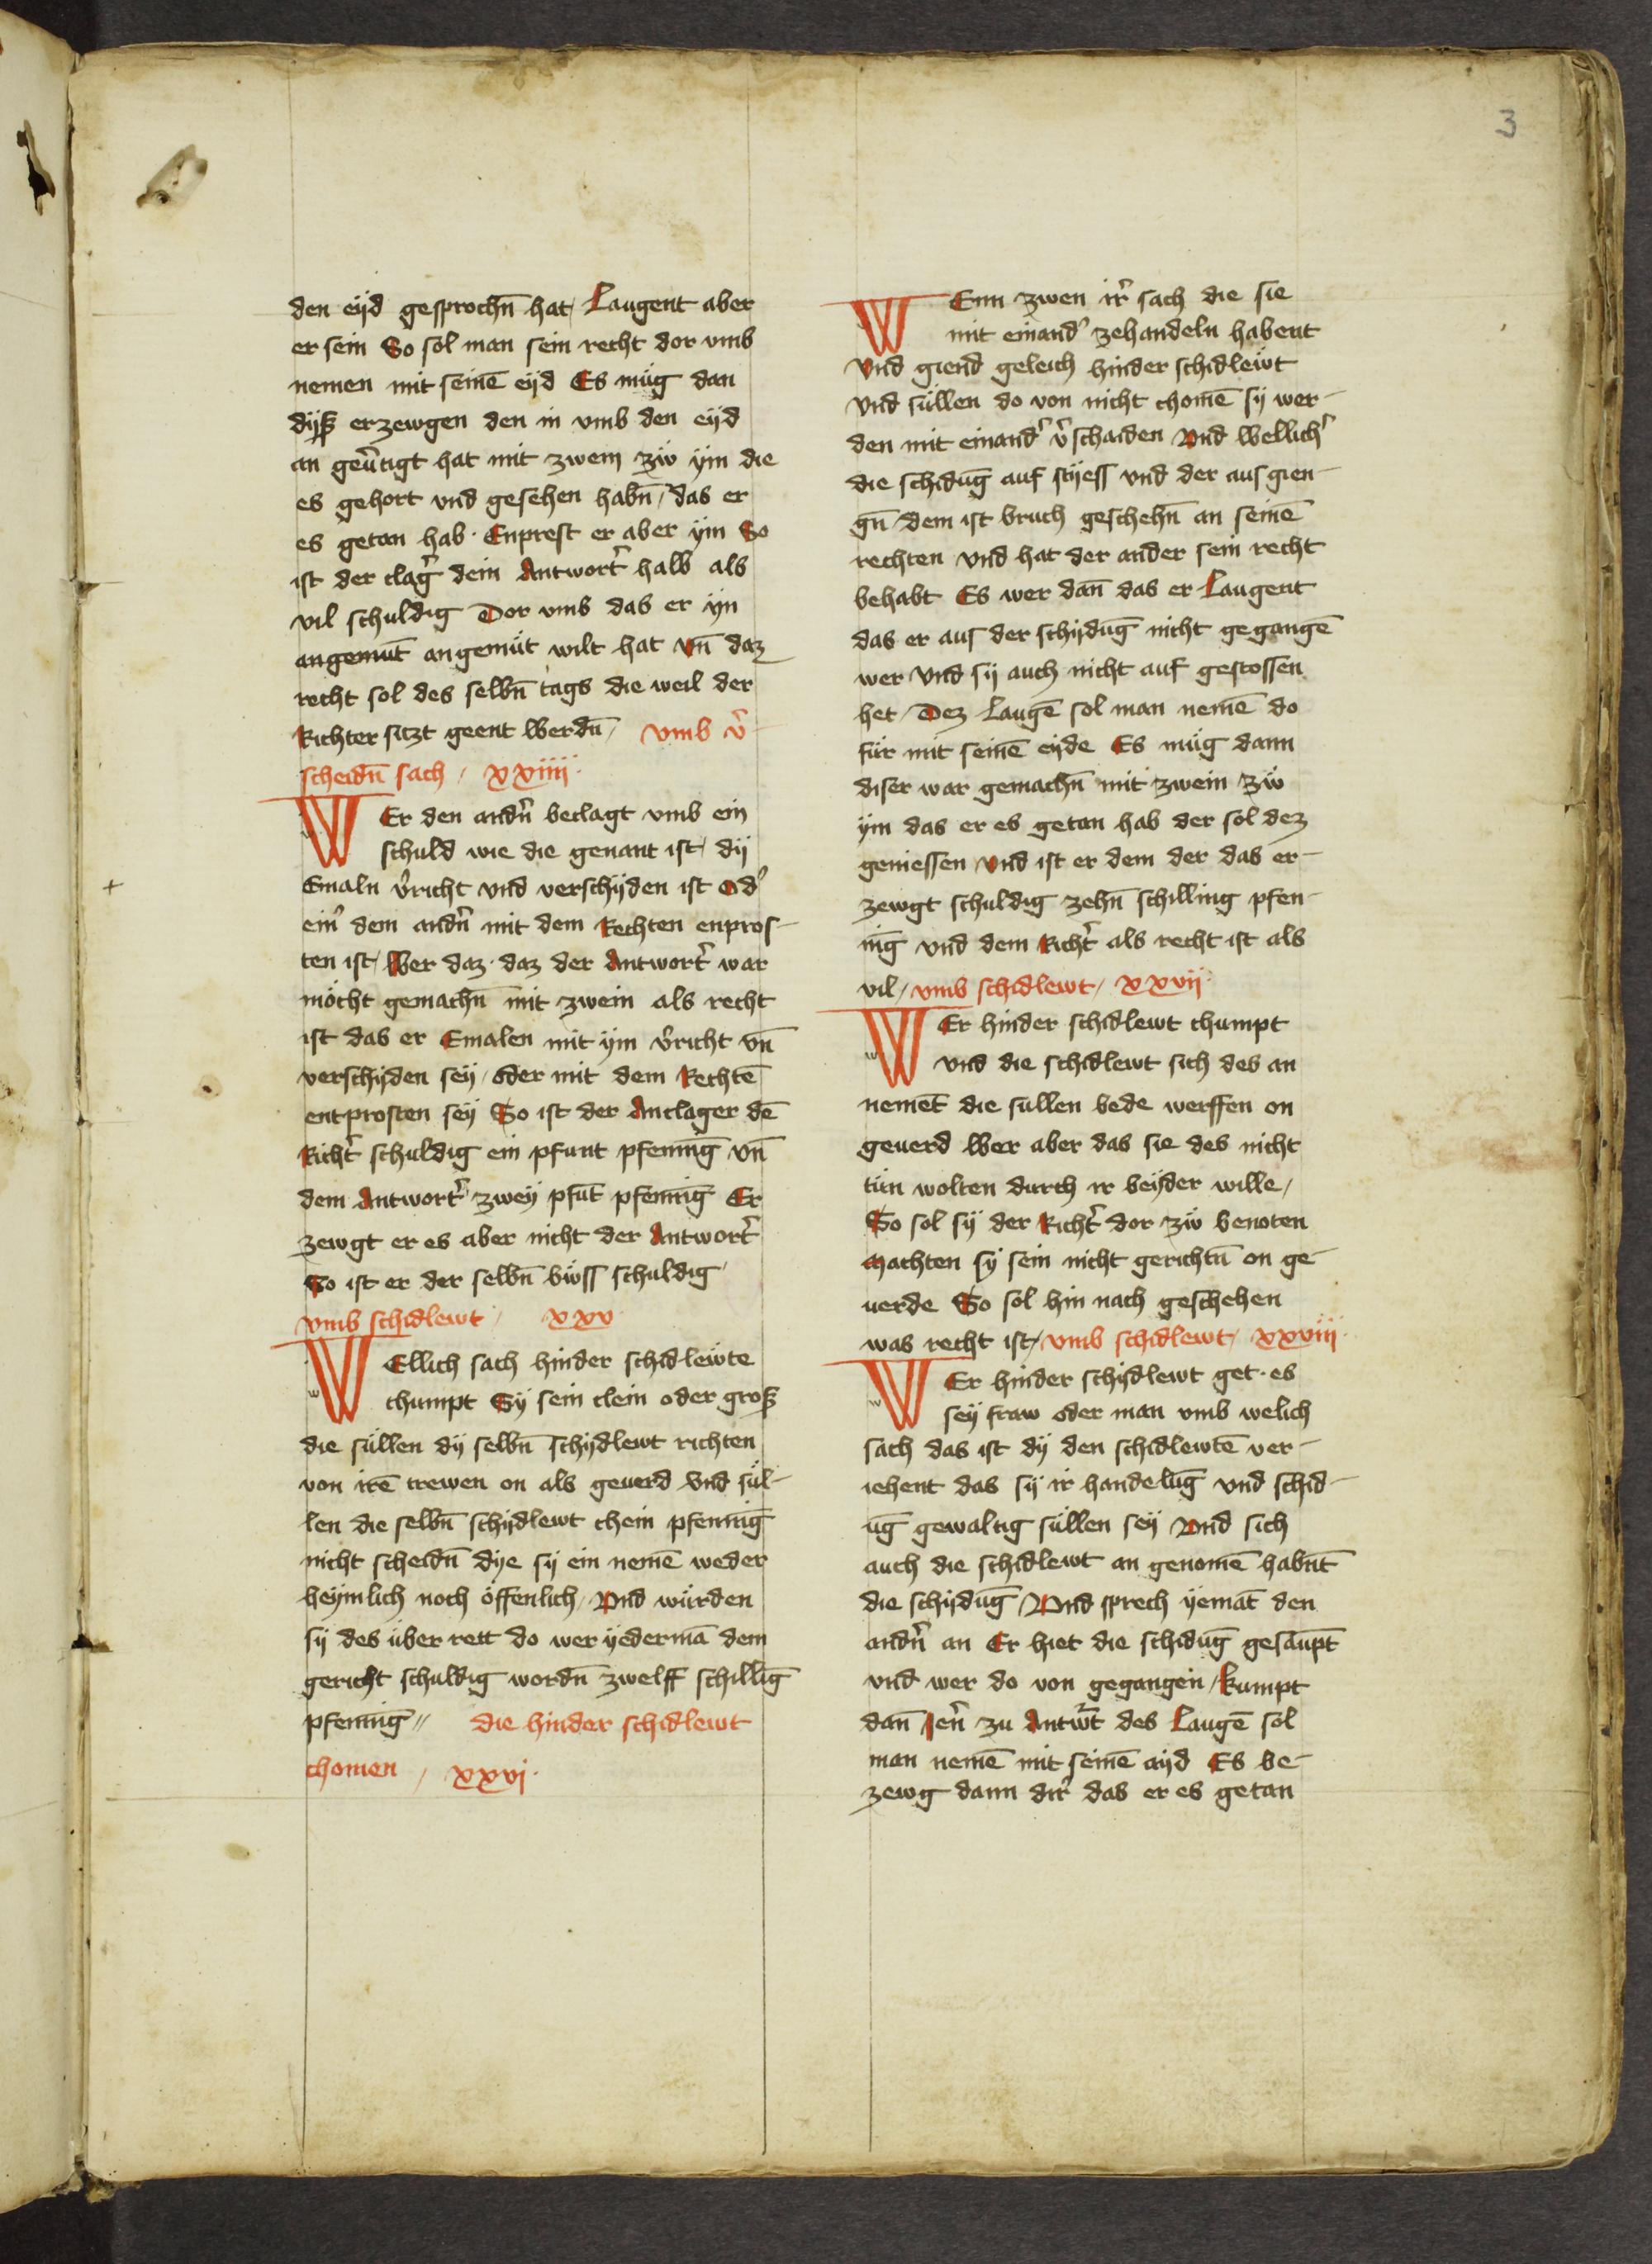 3
den eyd gesprochn̄ hat / Laugent aber
er sein So sol man sein recht dor vmb
nemen mit seinē eyd Es müg dan
dyß erzewgen den in vmb den eyd
an geu̅tigt hat mit zwem zů ym die
es gehort vnd gesehen habn̄ / das er
es getan hab · Enprest er aber ym So
ist der clag̉ dem Antwort̉ halb als
vil schuldig Dor vmb das er yn
angemut̄ angemüt wilt hat vn̄ daz
recht sol des selbn̄ tags die weil der
Richter siczt geent werdn̄ / vmb v̉
scheidn̄ sach / xxiiii ·
WEr den andn̉ beclagt vmb ein
schuld wie die genant ist / dy
Emaln v̉richt vnd verschyden ist od̉
ein̉ dem andn̉ mit dem Rechten enpros-
ten ist / Wer daz · daz der Antwort̉ war
möcht gemachn̄ mit zwein als recht
ist das er Emalen mit ym v̉richt vn̄
verschyden sey / oder mit dem Rechtē
entprosten sey So ist der Anclager dē
Richt̉ schuldig ein pfunt pfennīg vn̄
dem Antwort̉ zwey pfūt pfennīg Er
zewgt er es aber nicht der Antwort̉
So ist er der selbn̄ bůss schuldig
vmb schidlewt / xxv
WEllich sach hinder schidlewte
chumpt Sy sein clein oder groß
die süllen dy selbn̄ schydlewt richten
von irē trewen on als geuerd vnd sül-
len die selbn̄ schydlewt chein pfennīg
nicht scheidn̄ dye sy ein nemē weder
heymlich noch öffenlich / Vnd würden
sy des über rett do wer yedermā dem
gericht schuldig wordn̄ zwelff schillīg
pfennīg // die hinder schidlewt
chomen / xxvj ·
WEnn zwen ir̉ sach die sie
mit einand̉ zehandeln habent
Vnd giend geleich hinder schidlewt
vnd süllen do von nicht chomē sy wer-
den mit einand̉ v̉schaiden Vnd wellich̉
die schidūg auf styess vnd der aus gien-
gn̄ / dem ist bruch geschehn̄ an seinē
rechten vnd hat der ander sein recht
behabt Es wer dan̄ das er Laugent
das er aus der schydūg nicht gegangē
wer vnd sy auch nicht auf gestossen
het / Dez laugē sol man nemē do
für mit seinē eyde Es müg dann
diser war gemachn̄ mit zwein zů
ym das er es getan hab der sol dez
geniessen vnd ist er dem der das er-
zewgt schuldig zehn̄ schilling pfen-
nīg vnd dem Richt̉ als recht ist als
vil / vmb schidlewt / xxvij ·
WEr hinder schidlewt chumpt
vnd die schidlewt sich des an
nemēt die sullen bede werffen on
geuerd Wer aber das sie des nicht
tün wolten durch ir beyder wille /
So sol sy der Richt̉ dor zů benoten
Machten sy sein nicht gerichtn̄ on ge-
uerde So sol hin nach geschehen
was recht ist / vmb schidlewt / xxviii ·
WEr hinder schydlewt get · es
sey fraw oder man vmb welich
sach das ist dy den schidlewtē ver-
iehent das sy ir handelūg vnd schid-
ūg gewaltig süllen sey Vnd sich
auch die schidlewt an genomē habn̄t
die schydūg / Vnd sprech yemāt den
andn̉ an Er hiet die schidūg gesaupt
vnd wer do von gegangen / kumpt
dan̄ Jen̉ zu Antw̉t des Laugē sol
man nemē mit seinē ayd Es be-
zewg dann dir̉ das er es getan